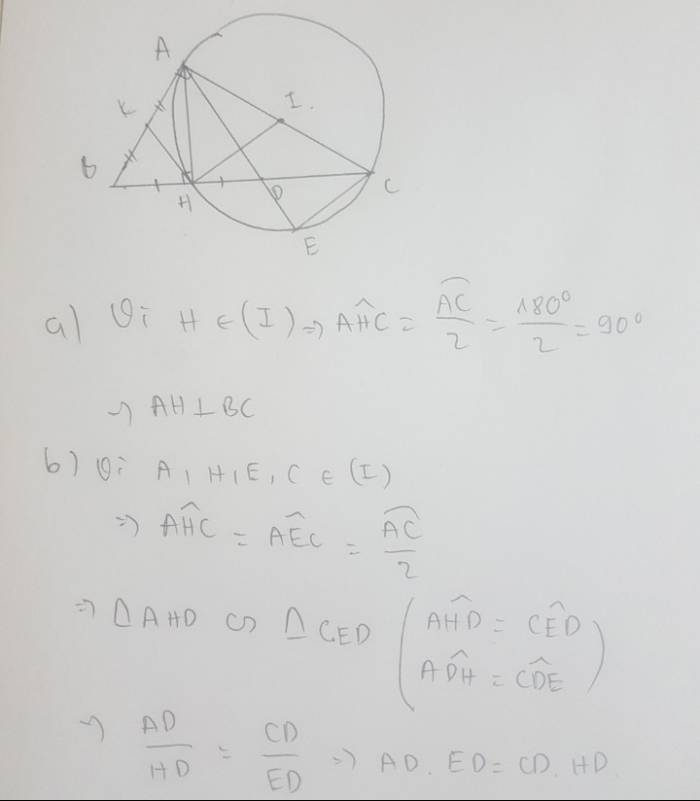 A
I.
K
B
H
D
C
E
a) Vì H ∈ (I) => AĤC = \frac{\overset{\frown}{AC}}{2} = \frac{180°}{2} = 90°
=> AH ⊥ BC
b) Vì A, H, E, C ∈ (I)
=> AĤC = AÊC = \frac{\overset{\frown}{AC}}{2}
=> ΔAHD ∽ ΔCED ( AĤD = CÊD
AD̂H = CD̂E )
=> \frac{AD}{HD} = \frac{CD}{ED} => AD. ED = CD. HD